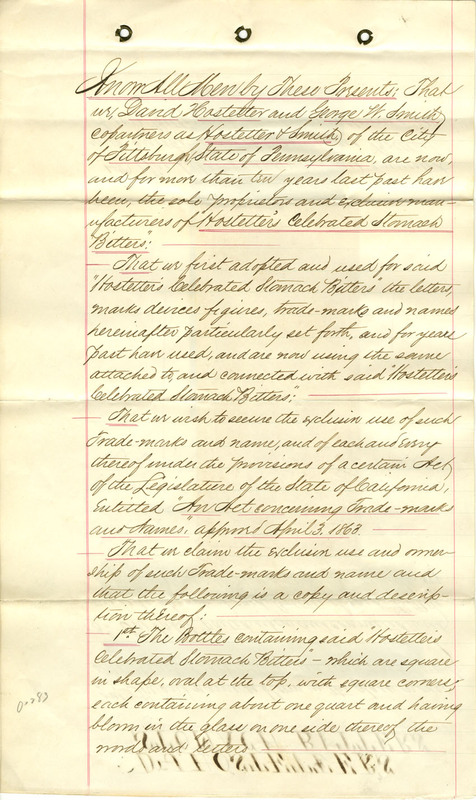 Know All Men by These Presents; That
we, David Hostetter and George W. Smith
copartners as Hostetter & Smith of the City
of Pittsburgh, State of Pennsylvania, are now,
and for more than ten years last past have
been, the sole proprietors and exclusive man-
ufacturers of "Hostetter's Celebrated Stomach
Bitters":
That we first adopted and used for said
"Hostetter's Celebrated Stomach Bitters" the letters,
marks devices figures, trade-marks and names
hereinafter particularly set forth, and for years
past have used, and are now using the same
attached to, and connected with said "Hostetter's
Celebrated Stomach Bitters";
That we wish to secure the exclusive use of such
Trade-marks and name, and of each and every
thereof under the provisions of a certain Act
of the Legislature of the State of California,
Entitled "An Act concerning Trade-marks
and Names," approved April 3, 1863.
That we claim the exclusive use and owner-
ship of such Trade-marks and name and
that the following is a copy and descrip-
tion thereof:
1st. The Bottles containing said "Hostetter's
Celebrated Stomach Bitters" - which are square
in shape, oval at the top, with square corners,
each containing about one quart and having
blown in the glass on one side thereof the
words and letters